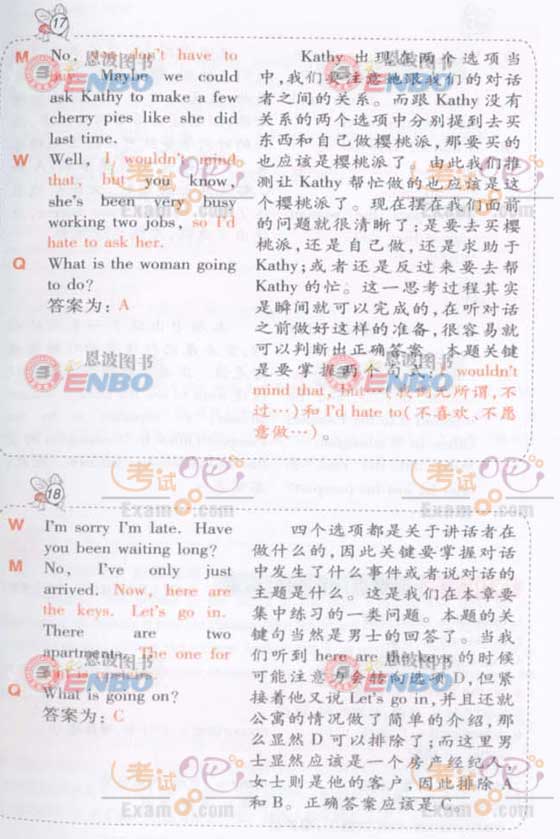 17
M No, you don't have to
buy. Maybe we could
ask Kathy to make a few
cherry pies like she did
last time.
W Well, I wouldn't mind
that, but you know,
she's been very busy
working two jobs, so I'd
hate to ask her.
Q What is the woman going
to do?
答案为：A
Kathy 出现在两个选项当
中，我们要注意她跟我们的对话
者之间的关系。而跟 Kathy 没有
关系的两个选项中分别提到去买
东西和自己做樱桃派，那要买的
也应该是樱桃派了！由此我们推
测让 Kathy 帮忙做的也应该是这
个樱桃派了。现在摆在我们面前
的问题就很清晰了：是要去买樱
桃派，还是自己做，还是求助于
Kathy；或者还是反过来要去帮
Kathy 的忙。这一思考过程其实
是瞬间就可以完成的，在听对话
之前做好这样的准备，很容易就
可以判断出正确答案。本题关键
是要掌握两个句式：I wouldn't
mind that, but…（我倒无所谓，不
过…）和 I'd hate to（不喜欢、不愿
意做…）。
18
W I'm sorry I'm late. Have
you been waiting long?
M No, I've only just
arrived. Now, here are
the keys. Let's go in.
There are two
apartments. The one for
Q What is going on?
答案为：C
四个选项都是关于讲话者在
做什么的，因此关键要掌握对话
中发生了什么事件或者说对话的
主题是什么。这是我们在本章要
集中练习的一类问题。本题的关
键句当然是男士的回答了。当我
们听到 here are the keys 的时候
可能注意力会转向选项 D，但紧
接着他又说 Let's go in，并且还就
公寓的情况做了简单的介绍，那
么显然 D 可以排除了；而这里男
士显然应该是一个房产经纪人，
女士则是他的客户，因此排除 A
和 B。正确答案应该是 C。
恩波图书
ENBO
考试吧
Exam8.com